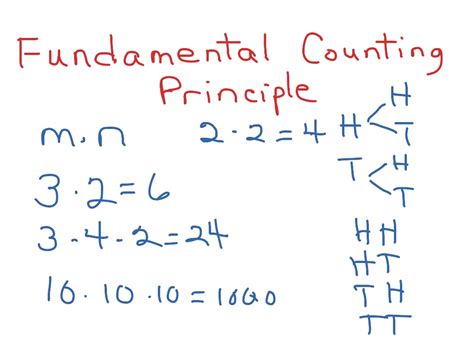 Fundamental Counting
Principle
m.n
2 · 2 = 4
H H
T
T H
T
3 · 2 = 6
3 · 4 · 2 = 24
10 · 10 · 10 = 1000
HH
HT
TH
TT